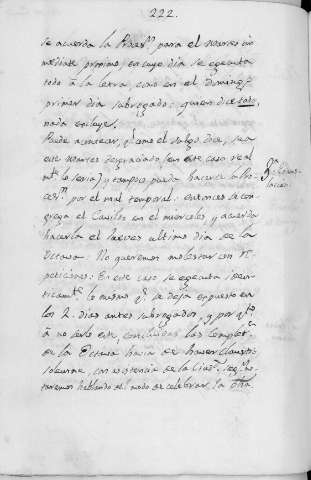 222.
se acuerda la Proces.n para el martes in
mediate proximo, en cuyo dia se egecuta
todo à la letra, como en el Domingo
primer dia subrogado: quien dice todo
nada excluye.
Puede acontecer, q.e ame el
este martes desgraciado (en este caso real
m.te lo seria) y tampoco pueda hacerse la Pro
ces.n por el mal temporal: entonces se con
grega el Cavildo en el miercoles, y acuerda
hacerla el Jueves ultimo dia de la
Octava: No queremos molestar con re
peticiones: En este caso se egecuta iden
ticam.te lo mismo q.e se deja expuesto en
los 2. dias antes subrogados, y por q.to
à no serlo este, concluidas las Completas
de la Octava havia de haver Claustro
solemne, con asistencia de la Ciu.d, seg.n no
taremos hablando del modo de celebrar la